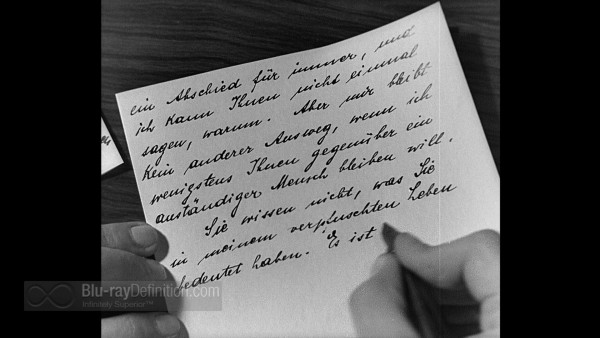 ein Abschied für immer, und
ich kann Ihnen nicht einmal
sagen, warum. Aber mir bleibt
kein anderer Ausweg, wenn ich
wenigstens Ihnen gegenüber ein
anständiger Mensch bleiben will.
Sie wissen nicht, was Sie
in meinem verpfuschten Leben
bedeutet haben. Es ist
Blu-rayDefinition.com
Infinitely Superior™